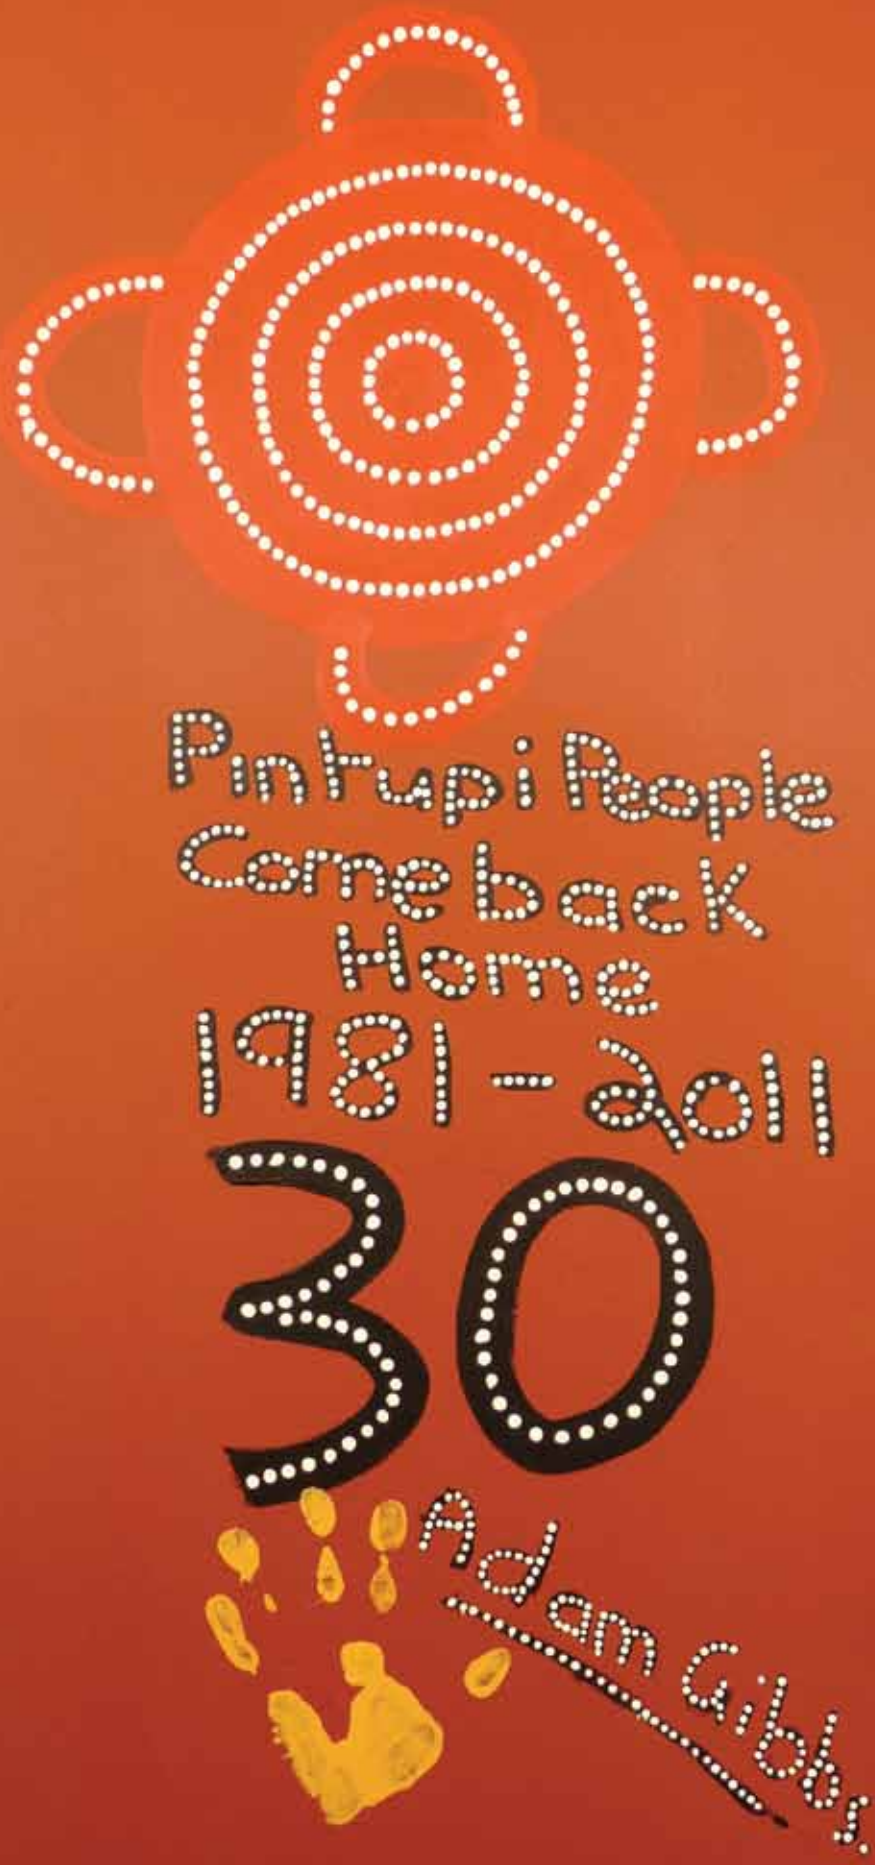 Pintupi People
Come back
Home
1981-2011
30
Adam Gibbs.